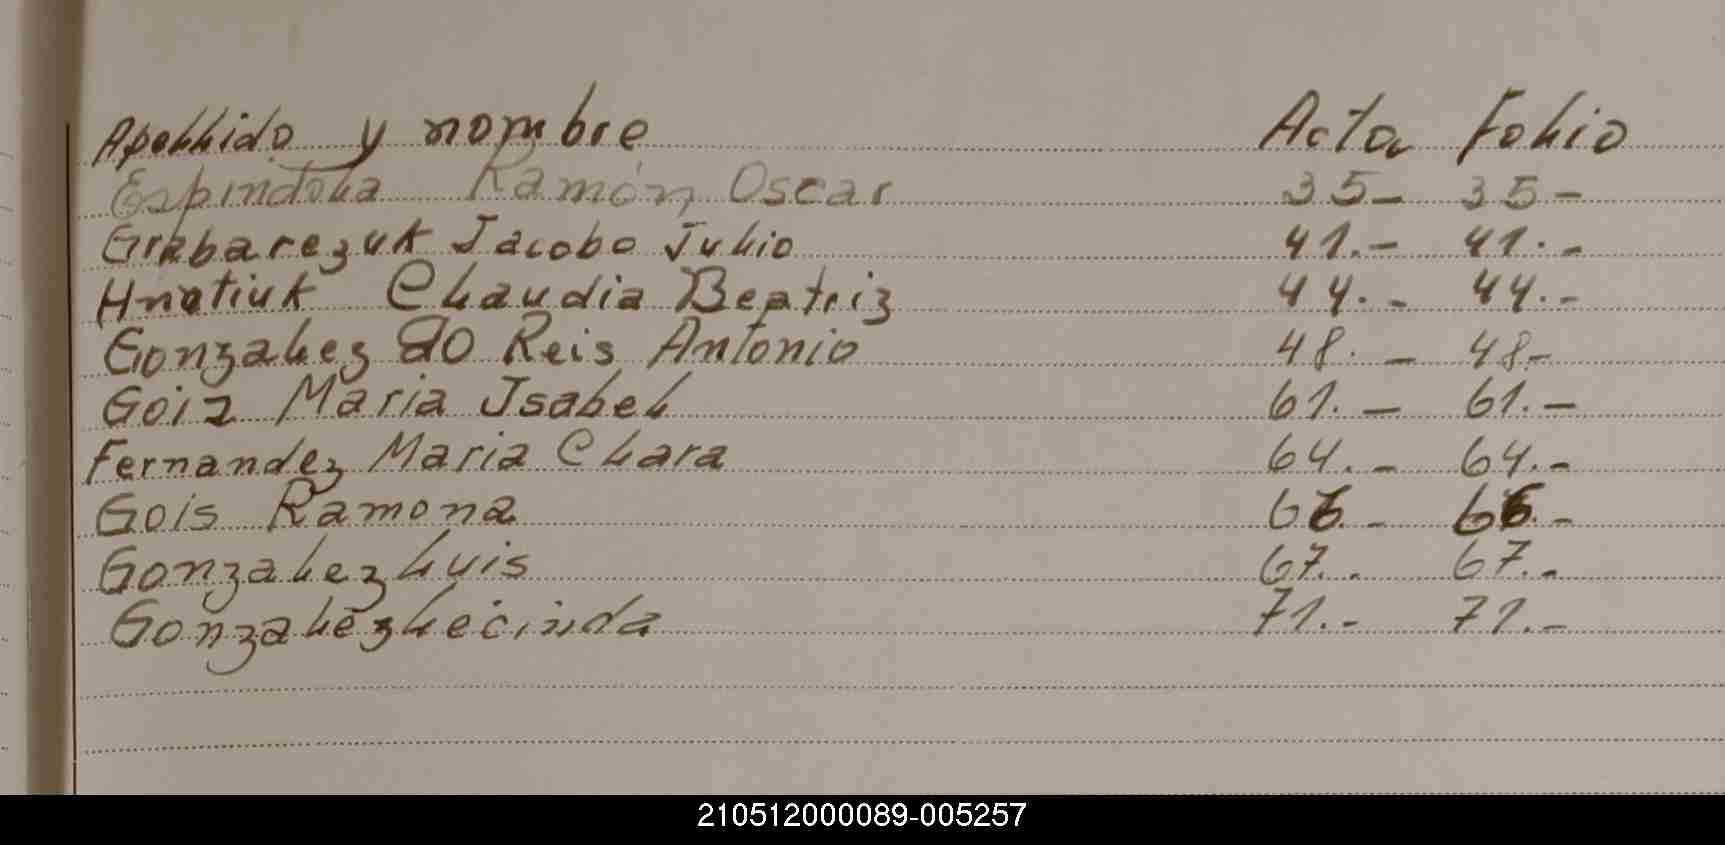 Apellido y nombre Acta Folio
Espindola Ramón Oscar 35- 35-
Grabarczuk Jacobo Julio 41.- 41.-
Hnatiuk Claudia Beatriz 44.- 44.-
Gonzalez do Reis Antonio 48.- 48-
Goiz Maria Isabel 61.- 61.-
Fernandez Maria Clara 64.- 64.-
Gois Ramona 66.- 66.-
Gonzalez Luis 67.- 67.-
Gonzalez 71.- 71.-
210512000089-005257